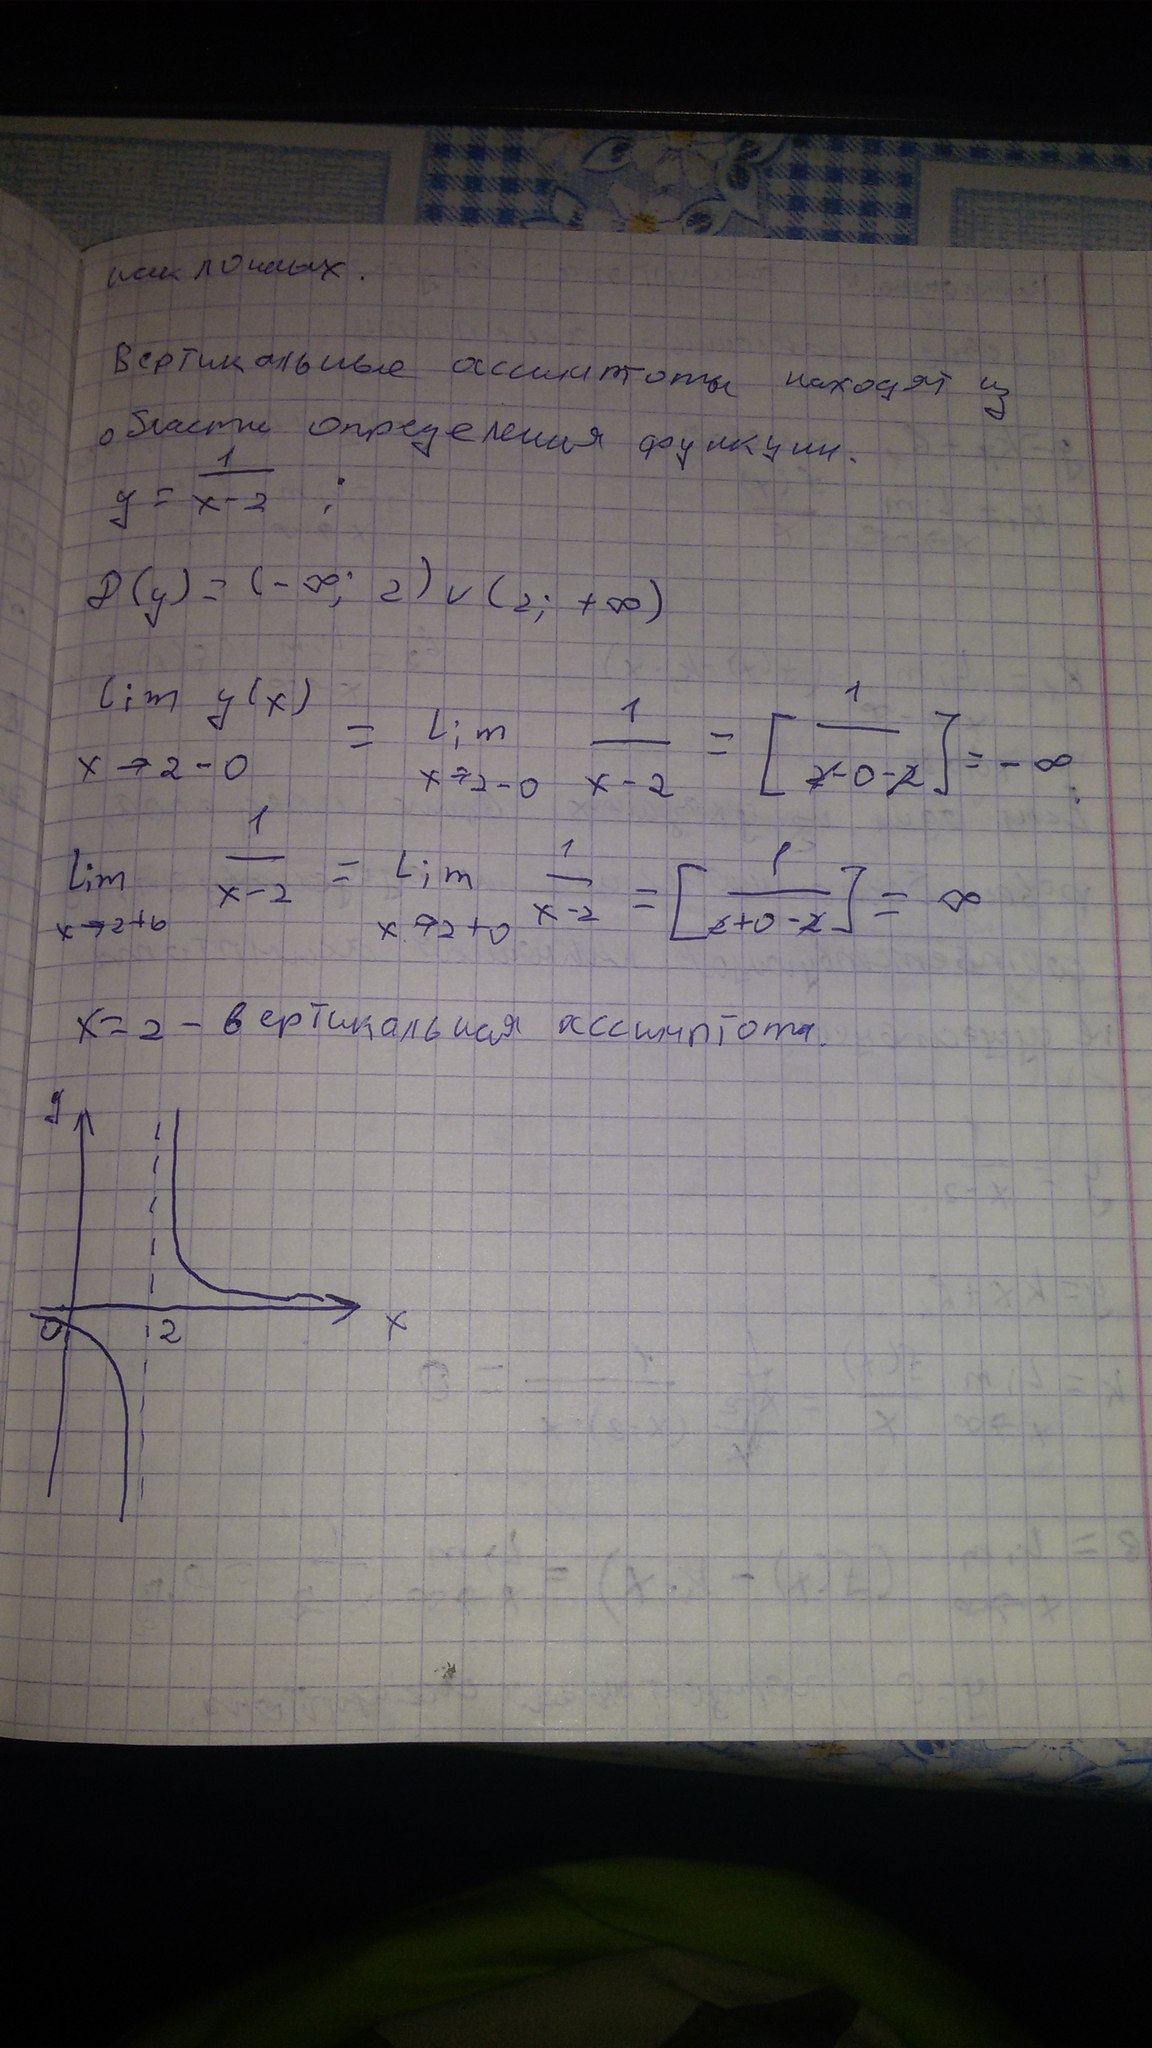 наклонных.
Вертикальные ассимптоты находят из
области определения функции.
y = 1/(x-2) ;
D(y) = (-∞; 2) ∪ (2; +∞)
lim y(x) x→2-0 = lim x→2-0 1/(x-2) = [1/(2-0-2)] = -∞;
lim x→2+0 1/(x-2) = lim x→2+0 1/(x-2) = [1/(2+0-2)] = ∞
x=2 - вертикальная ассимптота.
y
0 2 x